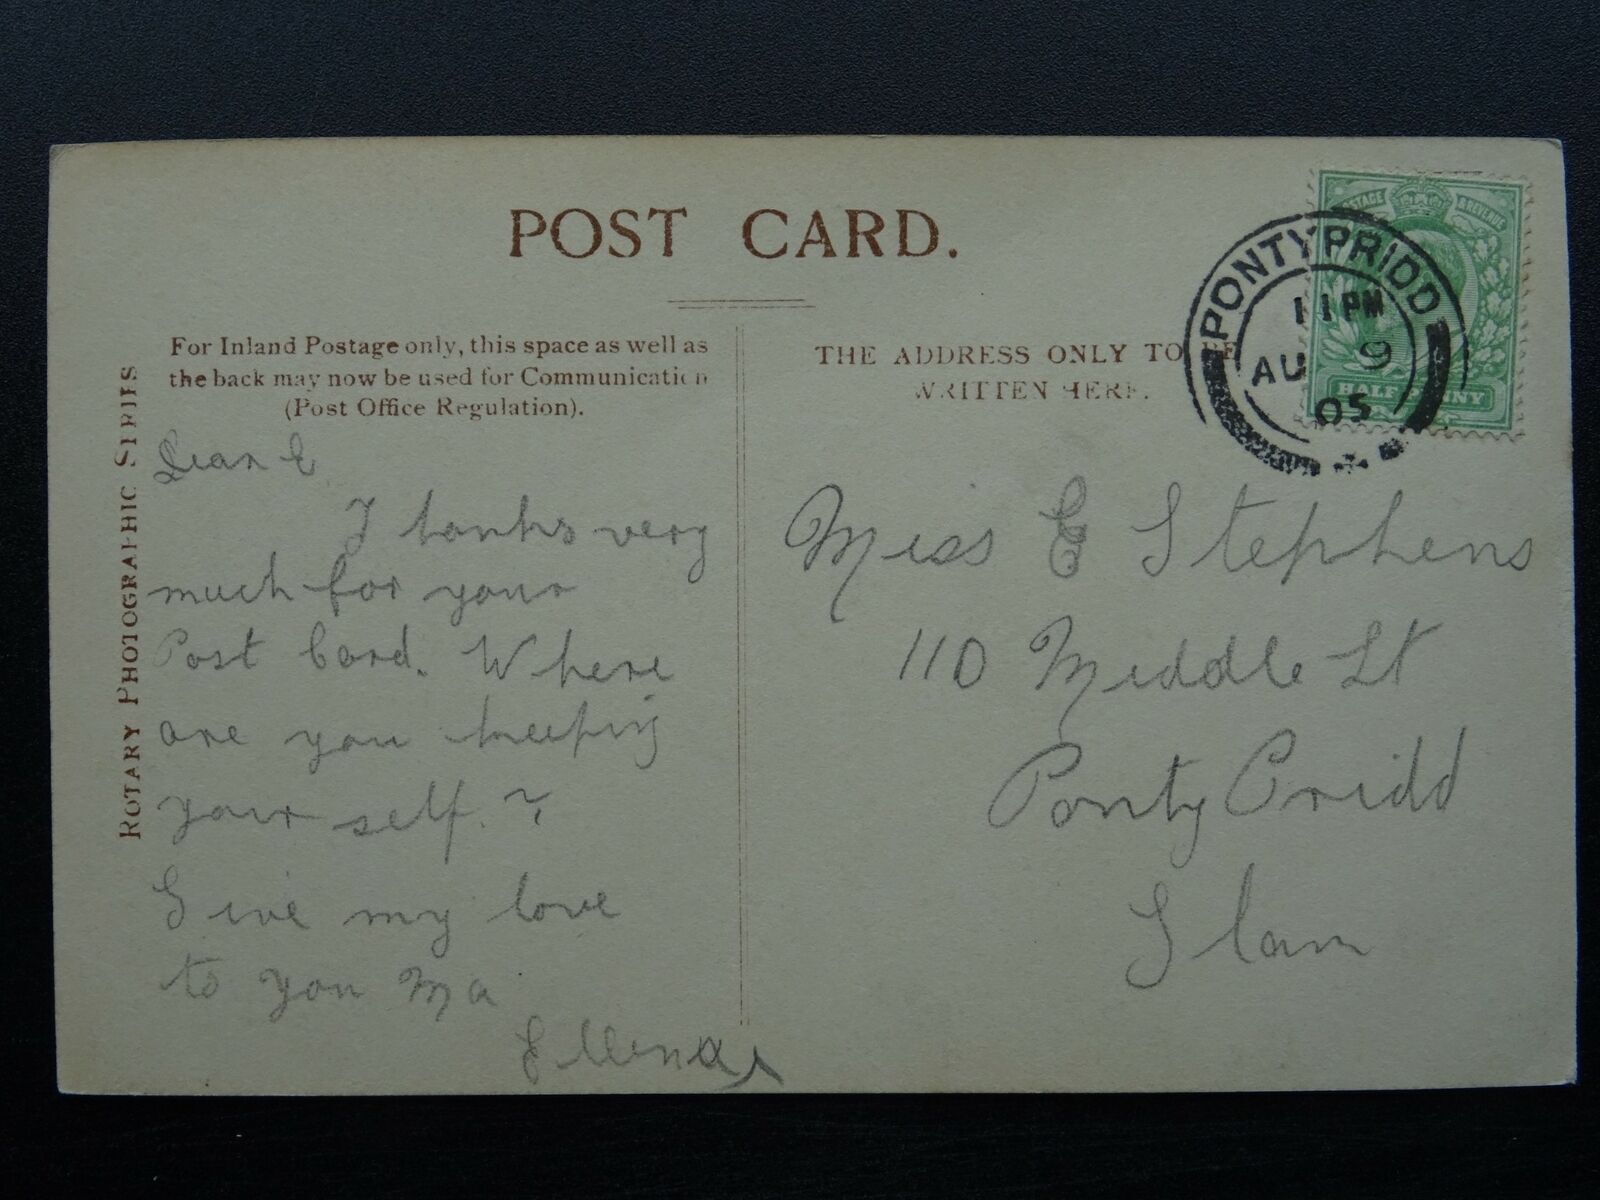 POST CARD.
For Inland Postage only, this space as well as
the back may now be used for Communication
(Post Office Regulation).
THE ADDRESS ONLY TO BE
WRITTEN HERE.
ROTARY PHOTOGRAPHIC SERIES
POSTAGE & REVENUE
HALF PENNY
PONTYPRIDD
11 PM
AU 9
05
Dear E
I thanks very
much for your
Post Card. Where
are you keeping
your self. ?
Give my love
to you Ma
Miss E Stephens
110 Middle St
Ponty Pridd
Glam